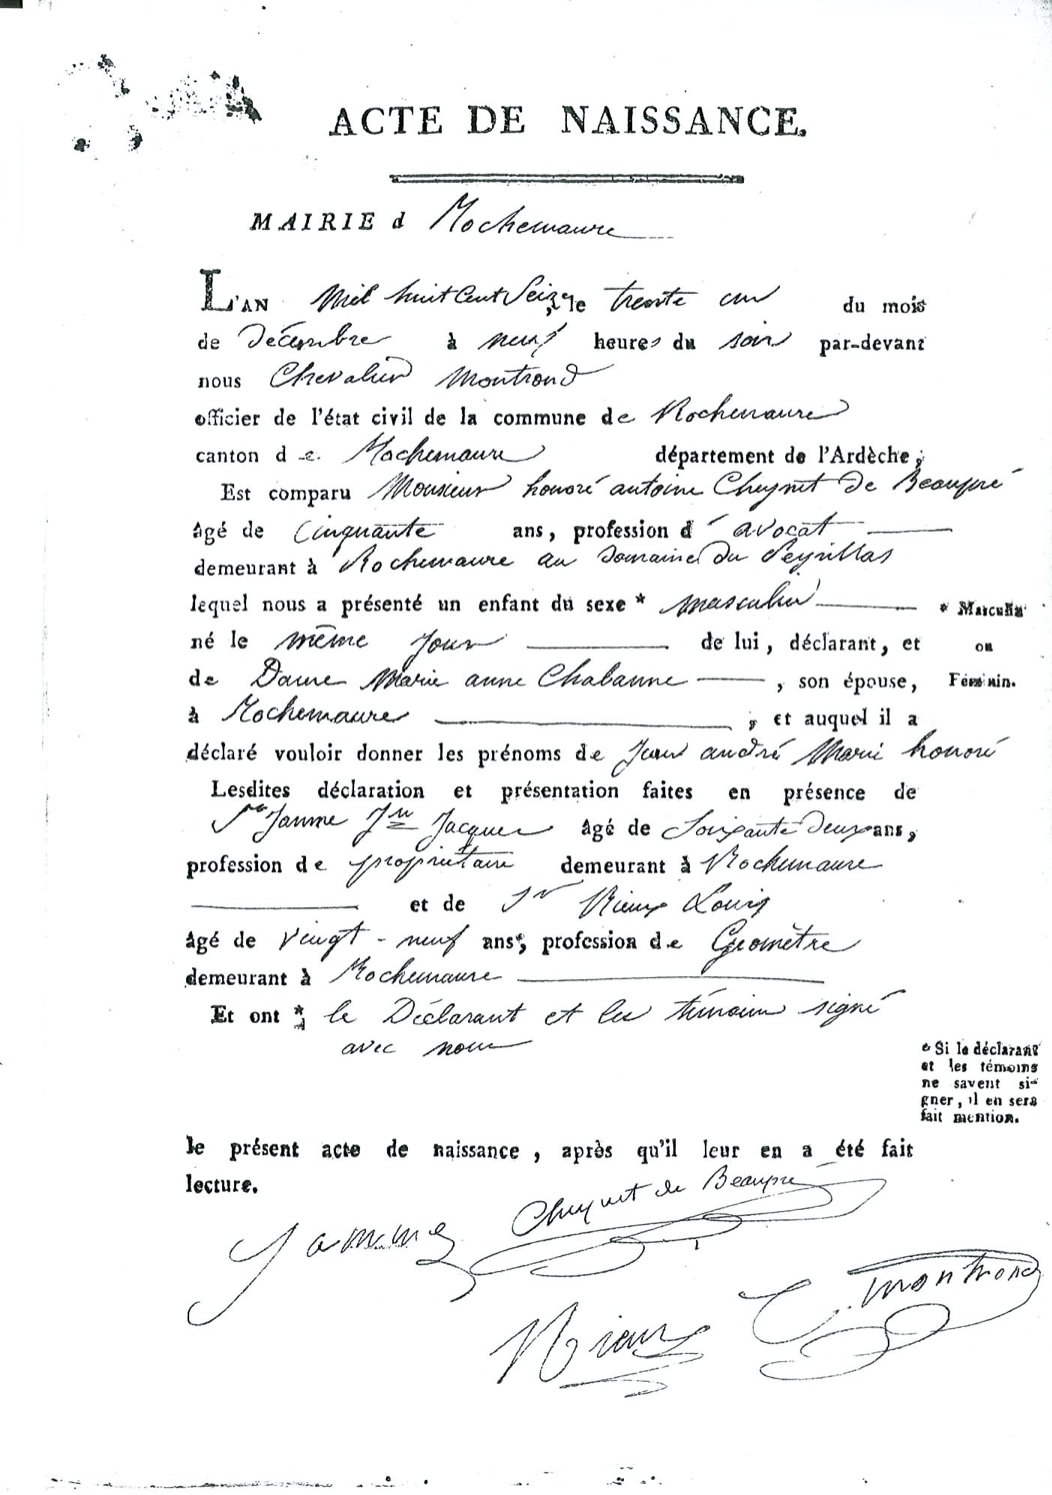 ACTE DE NAISSANCE.
MAIRIE d Rochemaure
L'AN Mil huit Cent Seize, le trente un du mois
de Décembre à neuf heures du soir par-devant
nous Chevalier Montrond
officier de l'état civil de la commune de Rochemaure
canton de Rochemaure département de l'Ardèche,
Est comparu Monsieur honoré antoine Cheynet de Beaupré
âgé de Cinquante ans, profession d'avocat
demeurant à Rochemaure au Domaine du Peyrillas
lequel nous a présenté un enfant du sexe * masculin * Masculin
né le même jour de lui, déclarant, et ou
de Dame Marie anne Chabanne, son épouse, Féminin.
à Rochemaure, et auquel il a
déclaré vouloir donner les prénoms de Jean andré Marie honoré
Lesdites déclaration et présentation faites en présence de
Sr Jamme Jn Jacques âgé de Soixante Deux ans,
profession de propriétaire demeurant à Rochemaure
et de Sr Rieux Louis
âgé de Veingt-neuf ans, profession de Géomètre
demeurant à Rochemaure
Et ont * le Déclarant et les témoins signé
avec nous
* Si le déclarant
et les témoins
ne savent si-
gner, il en sera
fait mention.
le présent acte de naissance, après qu'il leur en a été fait
lecture.
Cheynet de Beaupré
Jamme
C. Montrond
Rieux